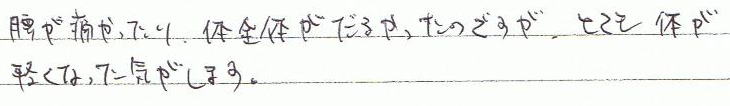 腰が痛かったり、体全体がだるかったのですが、とても体が
軽くなった気がします。